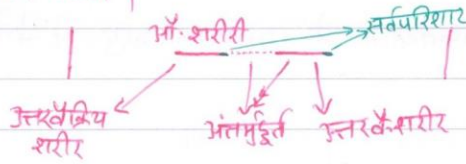 औ. शरीरी
सर्वपरिशाट
उत्तरवैक्रिय
शरीर
अंतर्मुहूर्त
उत्तरवै.शरीर